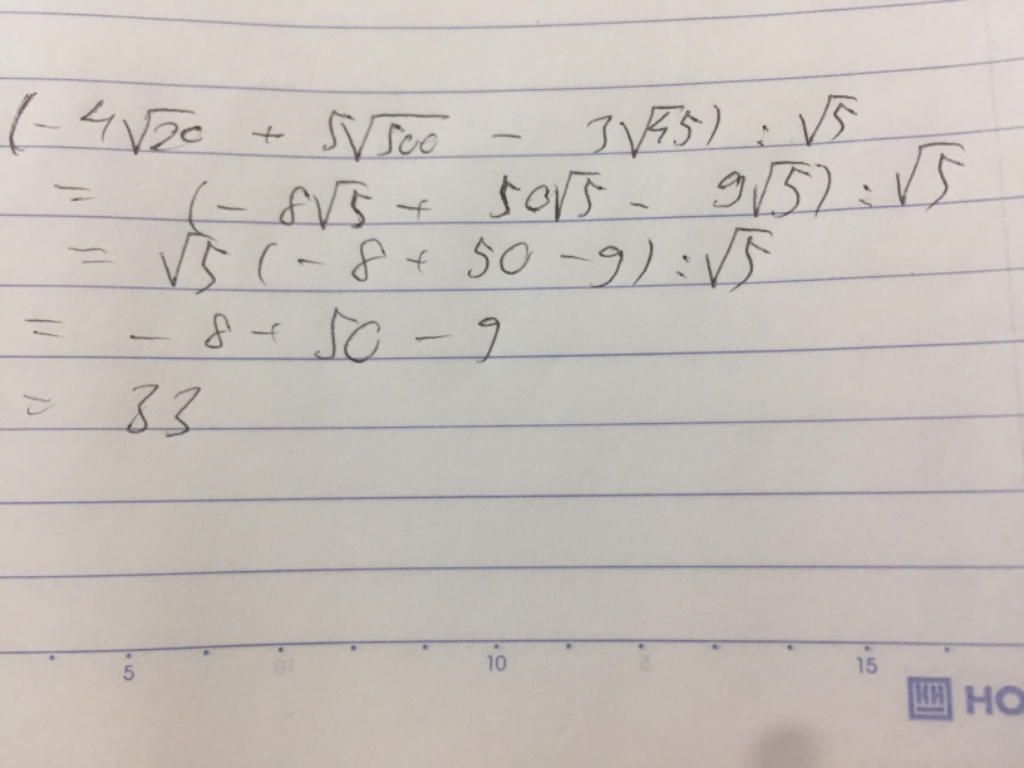 (-4√20 + 5√500 - 3√45) : √5
= (-8√5 + 50√5 - 9√5) : √5
= √5 (-8 + 50 - 9) : √5
= -8 + 50 - 9
= 33
5 10 15
HO